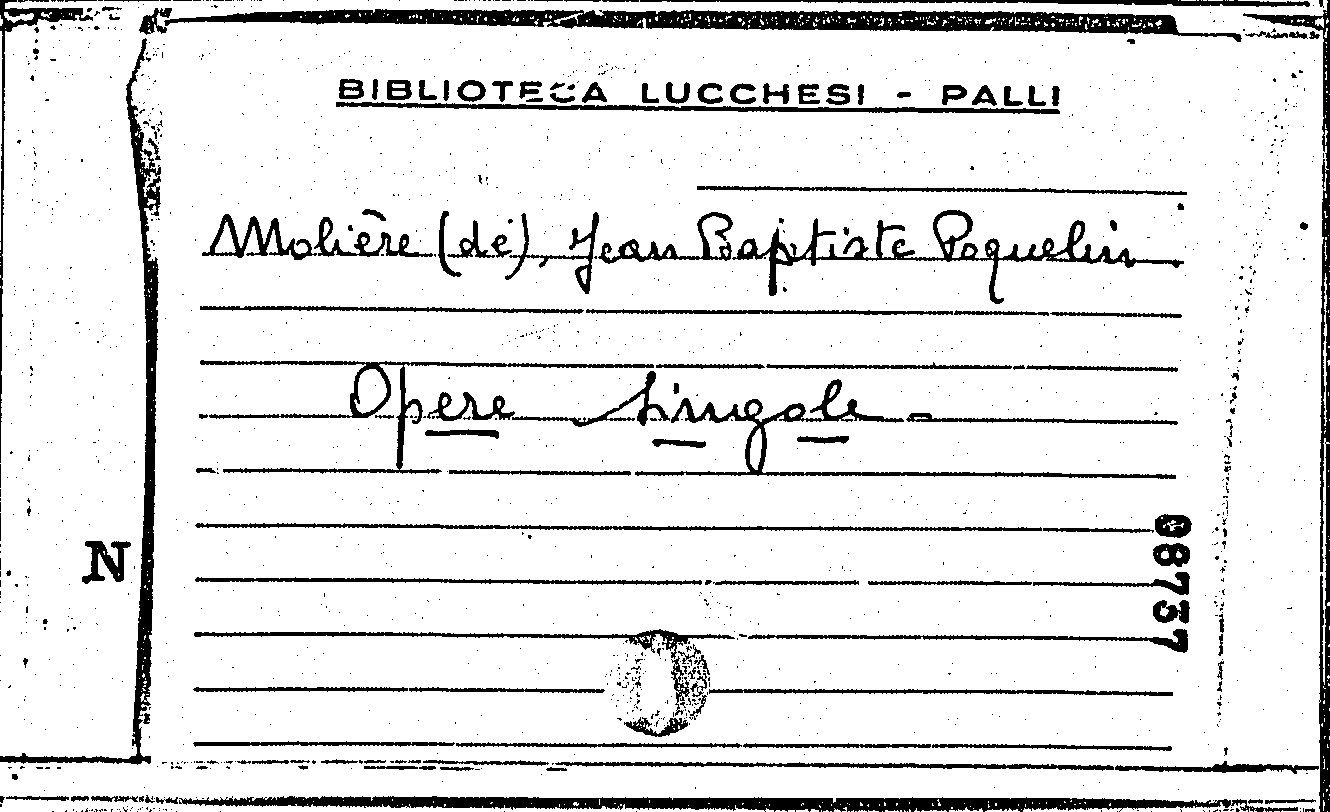 BIBLIOTECA LUCCHESI - PALLI
Molière (de), Jean Baptiste Poquelin.
Opere singole -
N
08737